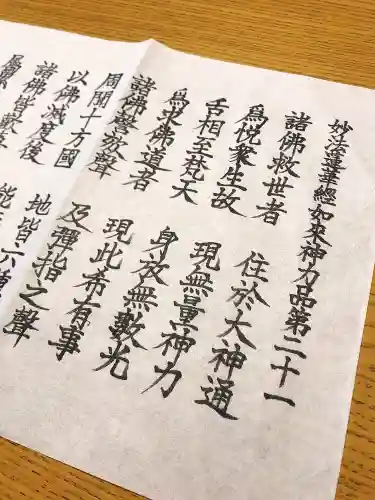 妙法蓮華經如來神力品第二十一
諸佛救世者 住於大神通
為悅衆生故 現無量神力
舌相至梵天 身放無數光
為求佛道者 現此希有事
諸佛謦欬聲 及彈指之聲
周聞十方國 地皆六種
以佛滅度後 能
諸佛皆歡